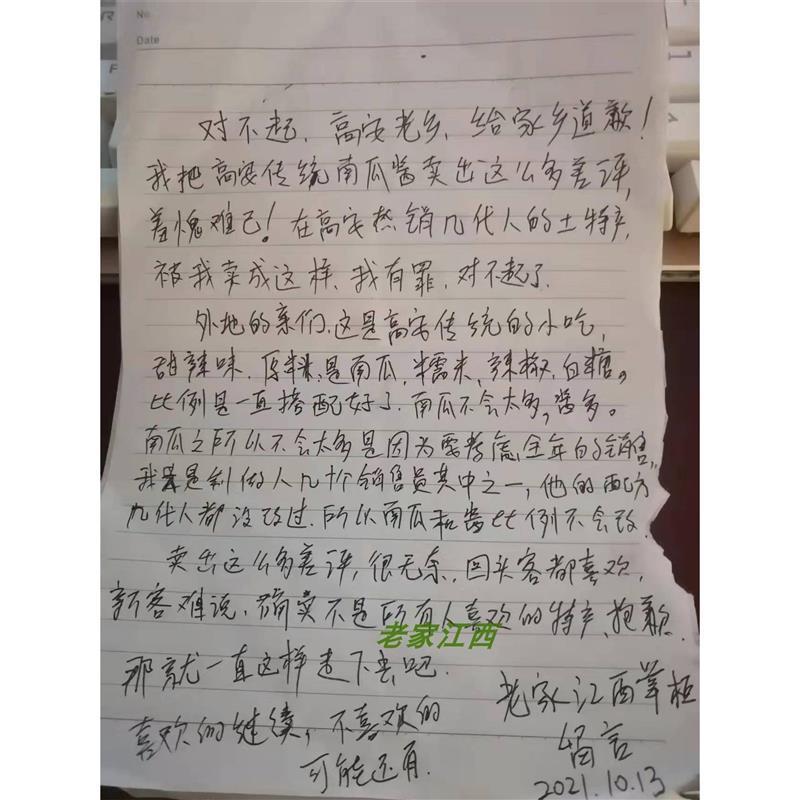 No.
Date
对不起，高安老乡，给家乡道歉！
我把高安传统南瓜酱卖出这么多差评，
羞愧难已！在高安热销几代人的土特产，
被我卖成这样、我有罪，对不起了.
外地的亲们，这是高安传统的小吃，
甜辣味．原料是南瓜，糯米，辣椒，白糖。
比例是一直搭配好了．南瓜不会太多，酱多。
南瓜之所以不会太多是因为要考虑全年的销售.
我是制做人几十个销售员其中之一，他的配方
几代人都没改过．所以南瓜和酱比例不会改.
卖出这么多差评，很无奈．回头客都喜欢，
新客难说．确实不是所有人喜欢的特产、抱歉．
老家江西
那就一直这样走下去吧．
喜欢的继续，不喜欢的
可能还有．
老家江西掌柜
留言
2021.10.13